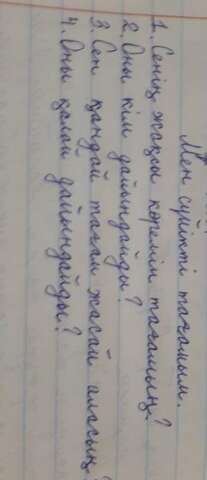 Мен сүйікті тағамым.
1. Сенің жақсы көретін тағамың?
2. Оны кім дайындайды?
3. Сен қандай тағам жасай аласың?
4. Оны қалай дайындайды?